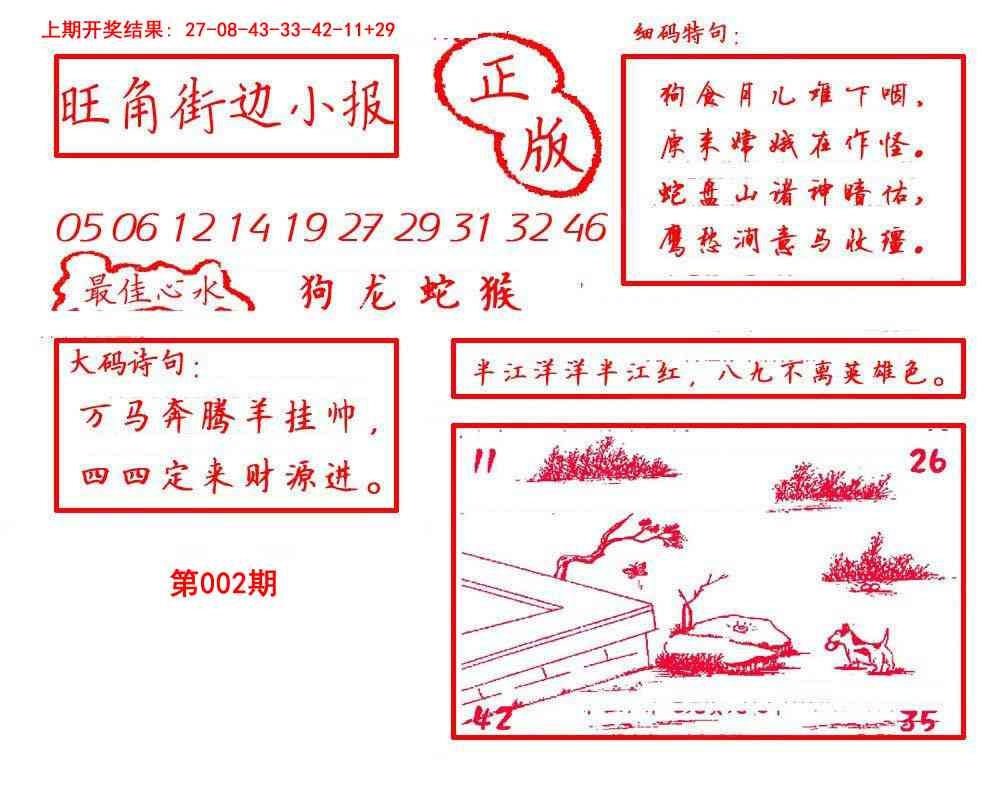 上期开奖结果: 27-08-43-33-42-11+29
旺角街边小报
正版
细码特句:
狗食月儿难下咽,
原来嫦娥在作怪。
蛇盘山诸神暗佑,
鹰愁涧意马收缰。
05 06 12 14 19 27 29 31 32 46
最佳心水
狗龙蛇猴
大码诗句:
万马奔腾羊挂帅,
四四定来财源进。
半江洋洋半江红,八九不离英雄色。
第002期
11
26
42
35